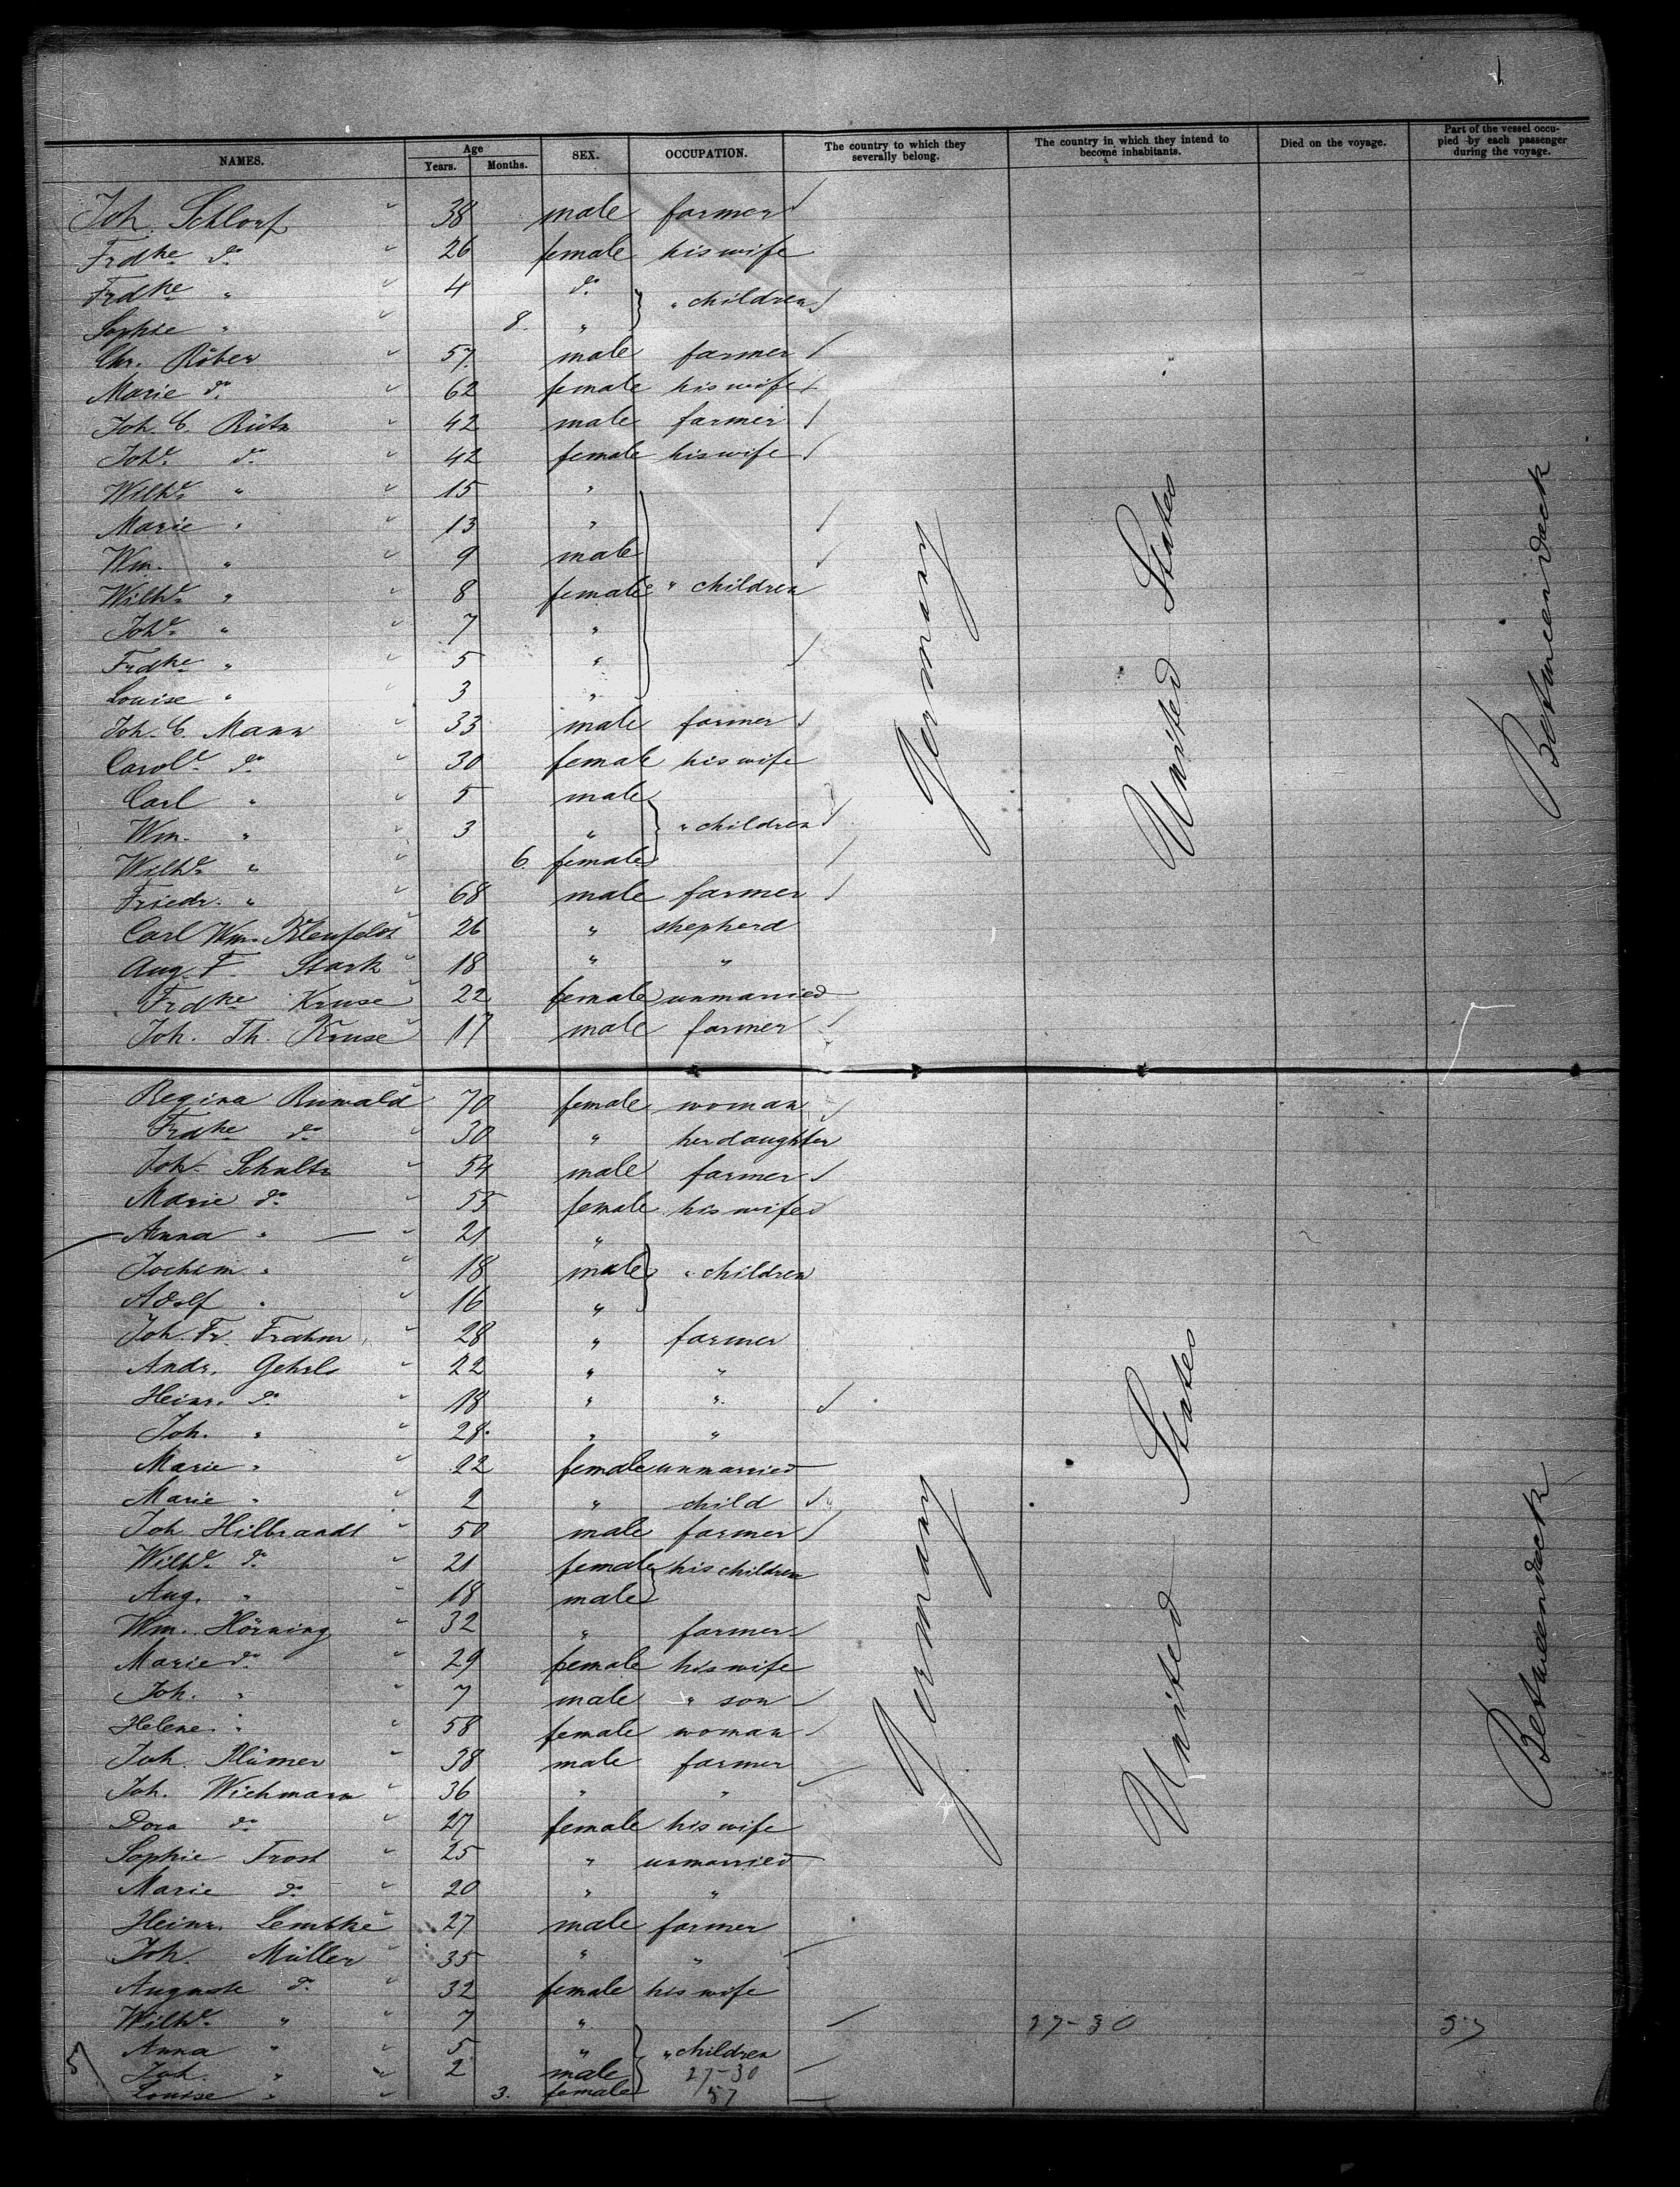 1
NAMES. Age Years. Months. SEX. OCCUPATION. The country to which they severally belong. The country in which they intend to become inhabitants. Died on the voyage. Part of the vessel occupied by each passenger during the voyage.
Joh. Schlorf 38 male farmer
Frdke do 26 female his wife
Frdke " 4 do " children
Sophie " 8. "
Chr. Röber 57 male farmer
Marie do 62 female his wife
Joh. C. Rütz 42 male farmer
Johe do 42 female his wife
Wilhe " 15 "
Marie " 13 "
Wm. " 9 male
Wilhe " 8 female " children
Johe " 7 "
Frdke " 5 "
Louise " 3 "
Joh. C. Mann 33 male farmer
Carole do 30 female his wife
Carl " 5 male
Wm. " 3 " " children
Wilhe " 6. female
Friedr. " 68 male farmer
Carl Wm. 26 " shepherd
Aug. F. Stark 18 " "
Frdke Kruse 22 female unmarried
Joh. Th. Kruse 17 male farmer
Germany
United States
Betweendeck
Regina Ruwald 70 female woman
Frdke do 30 " her daughter
Joh. Schultz 54 male farmer
Marie do 55 female his wife
Anna " 21 "
Jochim " 18 male " children
Adolf " 16 "
Joh. Fr. Frahm 28 " farmer
Andr. Gehrls 22 " "
Heinr. do 18 " "
Joh. " 28 " "
Marie " 22 female unmarried
Marie " 2 " child
Joh Hilbrandt 50 male farmer
Wilhe do 21 female his children
Aug. " 18 male
Wm. Hörning 32 " farmer
Marie do 29 female his wife
Joh. " 7 male " son
Helene " 58 female woman
Joh. Plümer 38 male farmer
Joh. Wichmann 36 " "
Dora do 27 female his wife
Sophie Frost 25 " unmarried
Marie do 20 " "
Heinr. Lembke 27 male farmer
Joh. Müller 35 " "
Auguste do 32 female his wife
Wilhe " 7 " 27-30 57
Anna " 5 " " children
Joh. " 2 male 27-30
Louise " 3. female 57
Germany
United States
Betweendeck